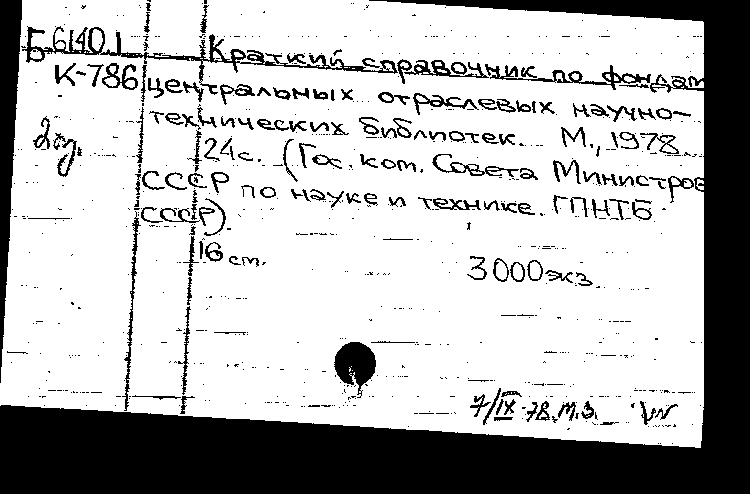 Б 6140.1
К-786
Краткий справочник по фондам
центральных отраслевых научно-
технических библиотек. М., 1978.
24с. (Гос. ком. Совета Министров
СССР по науке и технике. ГПНТБ
СССР).
16 ст.
3000экз.
7/IX-78. М.З.